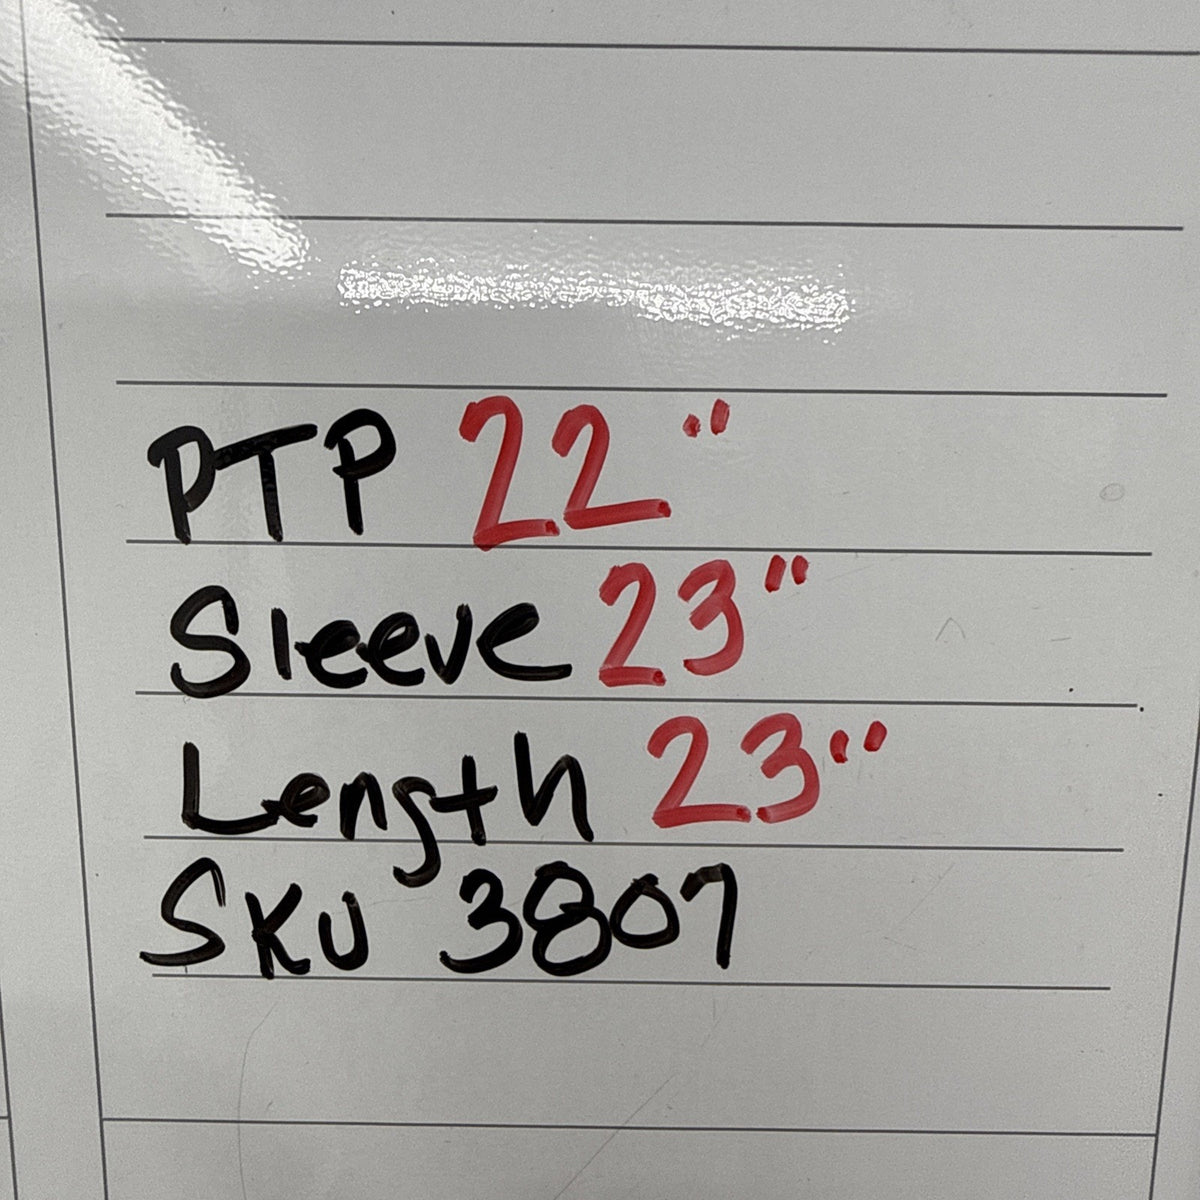 PTP 22"
Sleeve 23"
Length 23"
SKU 3807